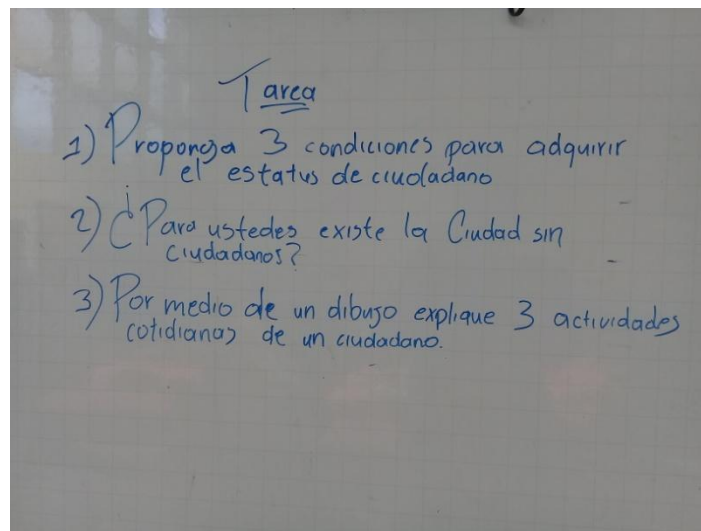 Tarea
1) Proponga 3 condiciones para adquirir
el estatus de ciudadano
2) ¿Para ustedes existe la Ciudad sin
ciudadanos?
3) Por medio de un dibujo explique 3 actividades
cotidianas de un ciudadano.